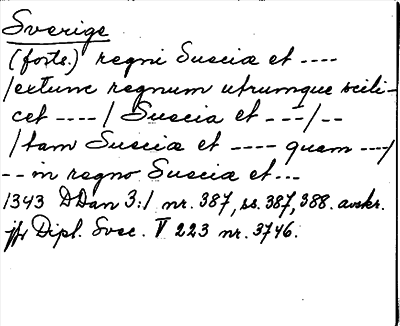 Sverige
(forts.) regni Sueciæ et ----
/extunc regnum utrumque scili-
cet ---- / Suecia et ---/--
/tam Sueciæ et ---- quam ---/
-- in regno Sueciæ et ---
1343 DDan 3:1 nr. 387, ss. 387, 388. avskr.
jfr Dipl. Svec. V 223 nr. 3746.